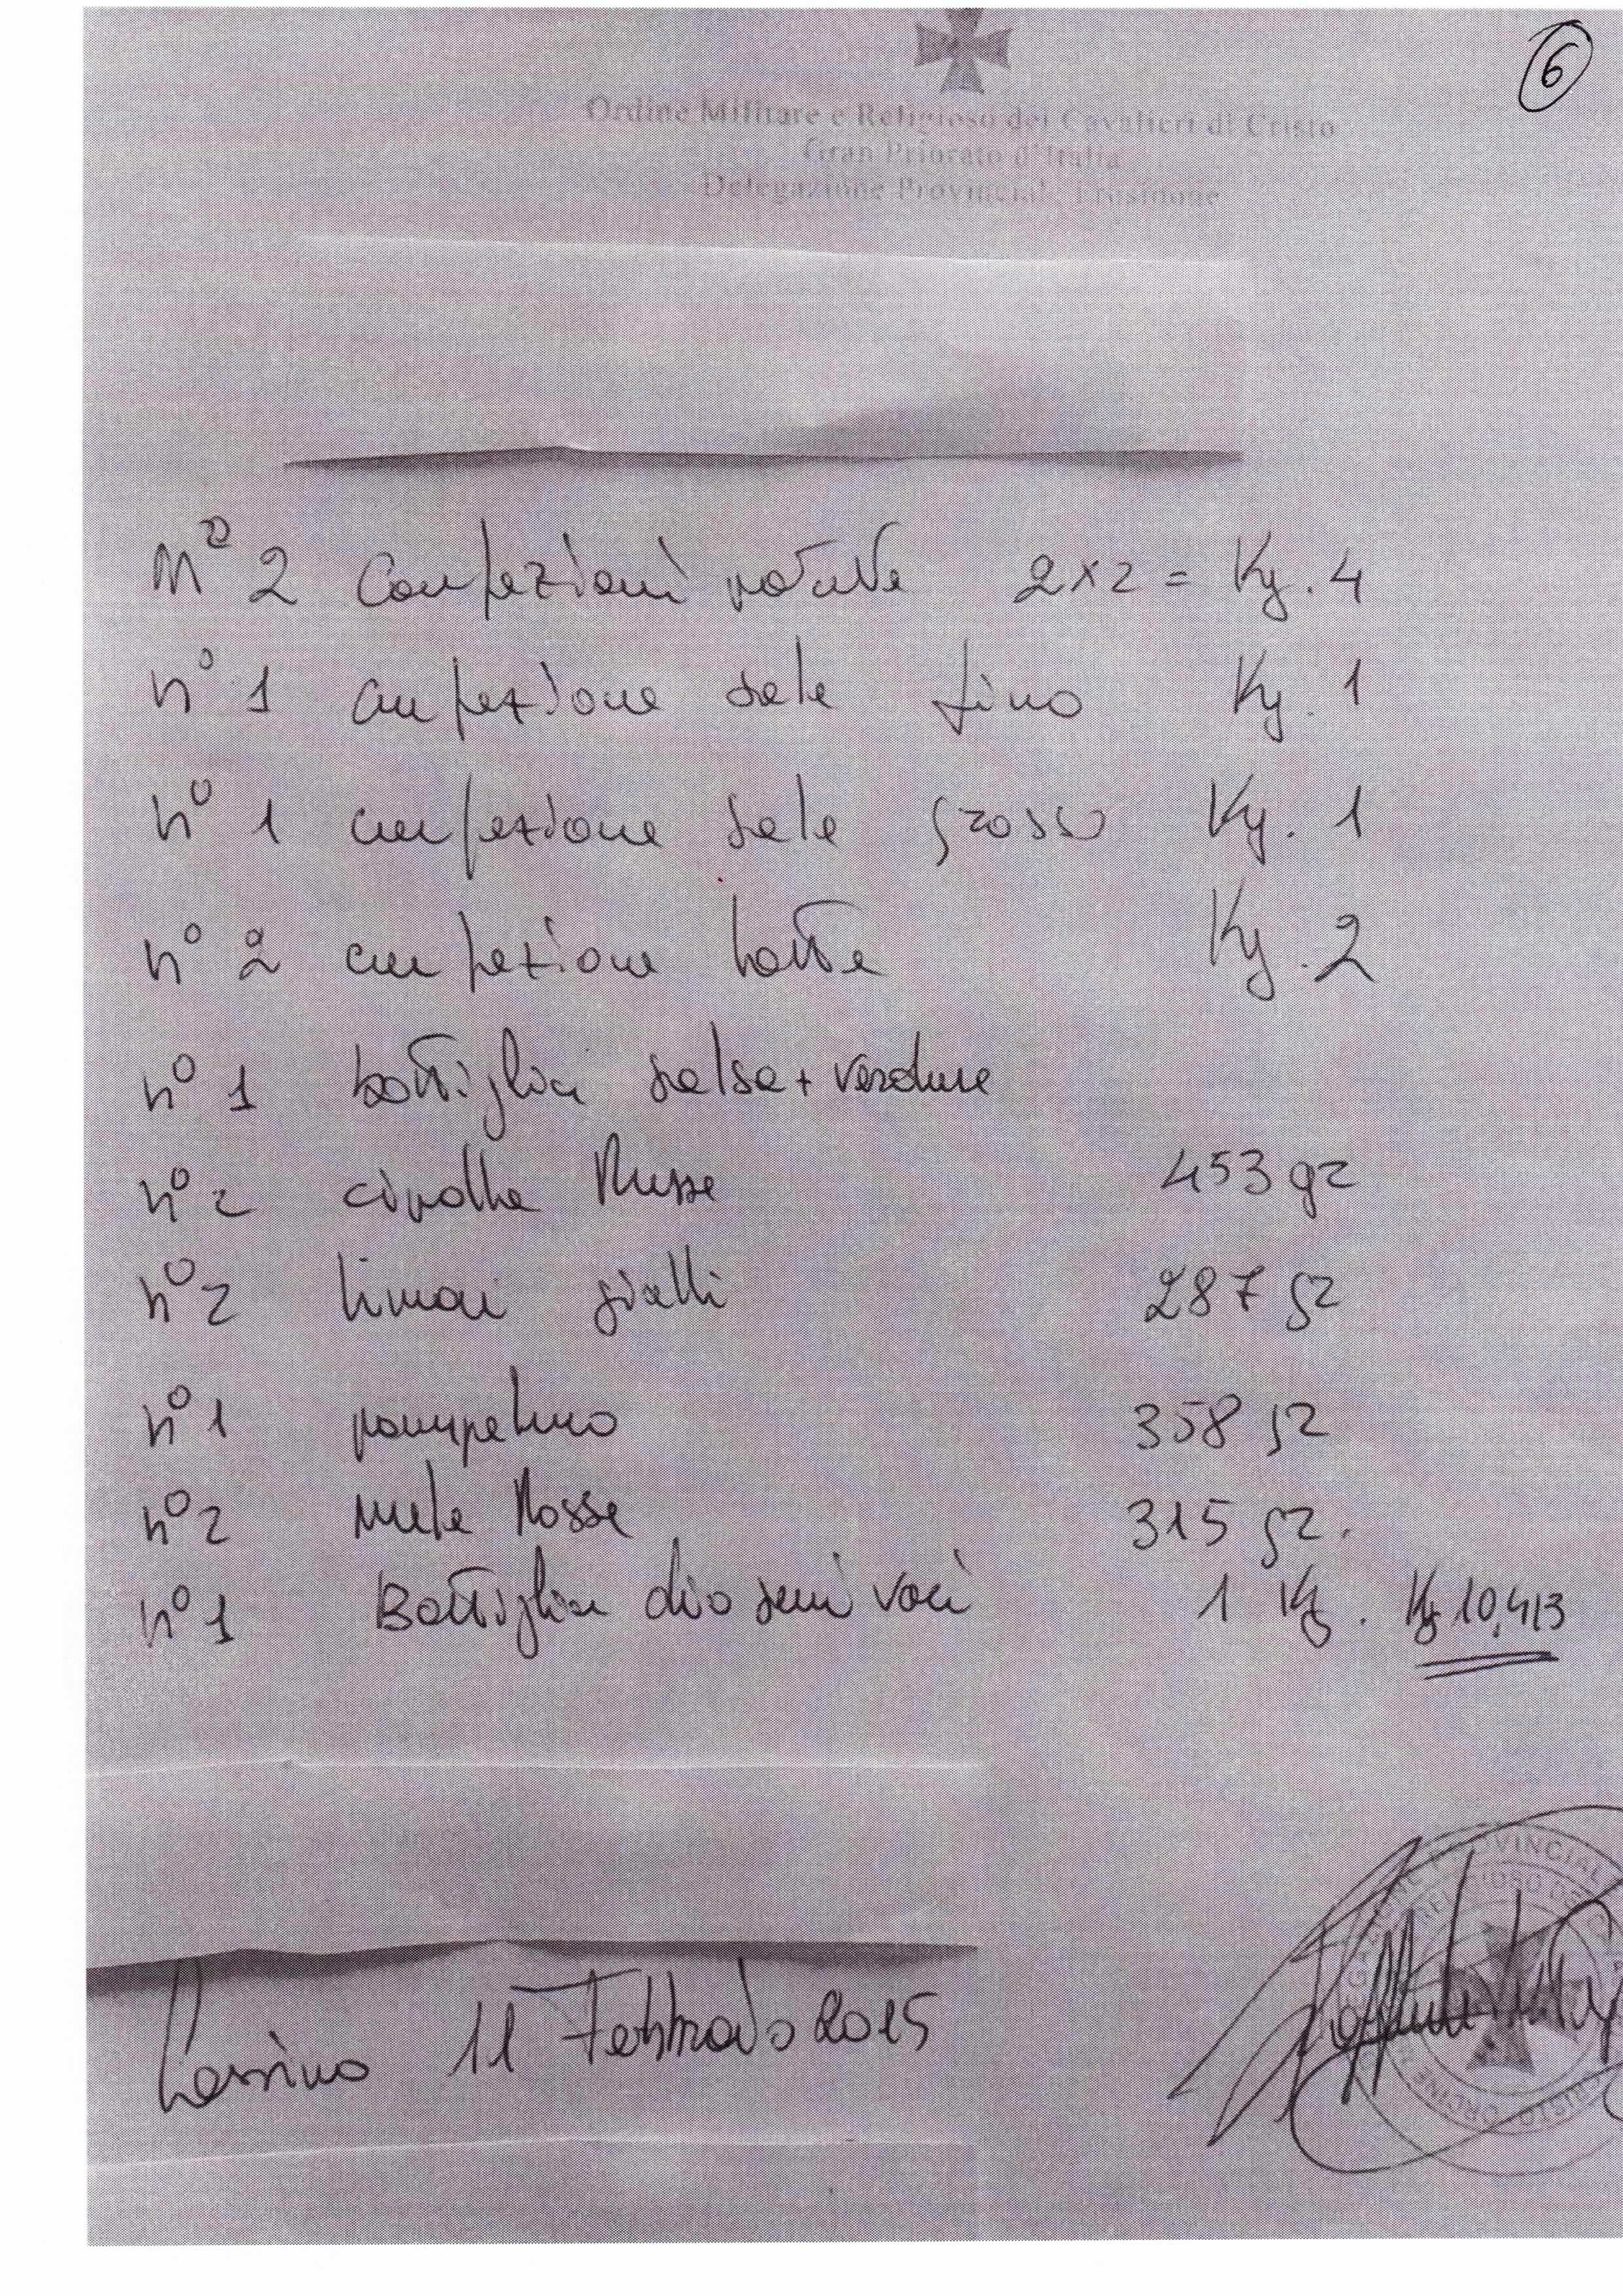 6
Ordine Militare e Religioso dei Cavalieri di Cristo
Gran Priorato d'Italia
Delegazione Provinciale Frosinone
N° 2 Confezioni patate 2x2 = Kg. 4
n° 1 confezione sale fino Kg. 1
n° 1 confezione sale grosso Kg. 1
n° 2 confezione latte Kg. 2
n° 1 bottiglia salsa + verdure
n° 2 cipolle Rosse 453 gr
n° 2 limoni gialli 287 gr
n° 1 pompelmo 358 gr
n° 2 mele Rosse 315 gr.
n° 1 Bottiglia olio semi vari 1 Kg. Kg 10,413
Cassino 11 Febbraio 2015
PROVINCIAL
RELIGIOSO DEI CA
ORDINE